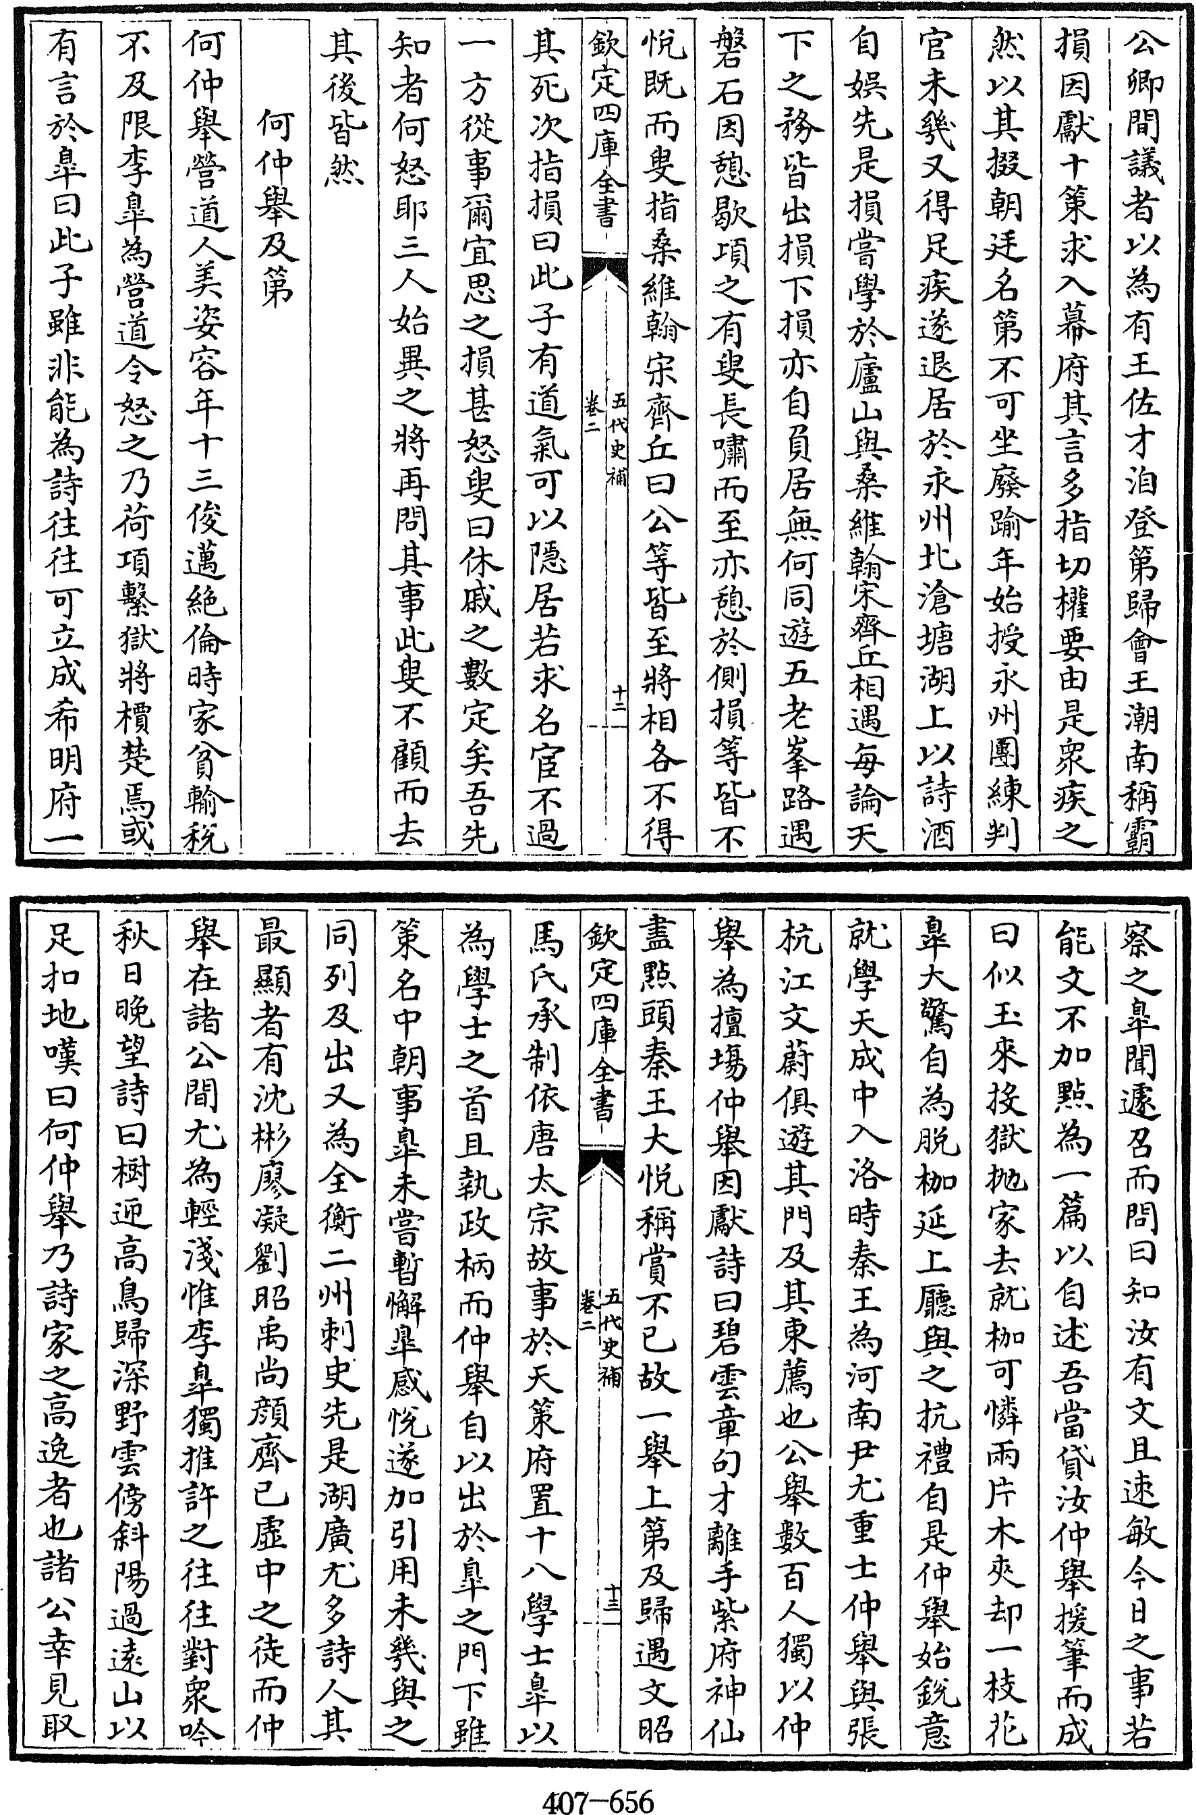 公卿間議者以為有王佐才洎登第歸會王潮南稱霸
損因獻十策求入幕府其言多指切權要由是衆疾之
然以其掇朝廷名第不可坐廢踰年始授永州團練判
官未幾又得足疾遂退居於永州北滄塘湖上以詩酒
自娛先是損嘗學於廬山與桑維翰宋齊丘相遇每論天
下之務皆出損下損亦自負居無何同遊五老峯路遇
磐石因憩歇項之有叟長嘯而至亦憩於側損等皆不
悅既而叟指桑維翰宋齊丘曰公等皆至將相各不得
欽定四庫全書
五代史補
卷二
十二
其死次指損曰此子有道氣可以隱居若求名宦不過
一方從事爾宜思之損甚怒叟曰休戚之數定矣吾先
知者何怒耶三人始異之將再問其事此叟不顧而去
其後皆然
何仲舉及第
何仲舉營道人美姿容年十三俊邁絶倫時家貧輸稅
不及限李臯為營道令怒之乃荷項繫獄將檟楚焉或
有言於臯曰此子雖非能為詩往往可立成希明府一
察之臯聞遽召而問曰知汝有文且速敏今日之事若
能文不加點為一篇以自述吾當貸汝仲舉援筆而成
曰似玉來投獄抛家去就枷可憐兩片木夾却一枝花
臯大驚自為脫枷延上廳與之抗禮自是仲舉始銳意
就學天成中入洛時秦王為河南尹尤重士仲舉與張
杭江文蔚俱遊其門及其東薦也公舉數百人獨以仲
舉為擅塲仲舉因獻詩曰碧雲章句才離手紫府神仙
盡點頭秦王大悅稱賞不已故一舉上第及歸遇文昭
欽定四庫全書
五代史補
卷二
十三
馬氏承制依唐太宗故事於天策府置十八學士臯以
為學士之首且執政柄而仲舉自以出於臯之門下雖
策名中朝事臯未嘗暫懈臯感悅遂加引用未幾與之
同列及出又為全衡二州刺史先是湖廣尤多詩人其
最顯者有沈彬廖凝劉昭禹尚顔齊己虛中之徒而仲
舉在諸公間尤為輕淺惟李臯獨推許之往往對衆吟
秋日晚望詩曰樹迎高鳥歸深野雲傍斜陽過遠山以
足扣地嘆曰何仲舉乃詩家之高逸者也諸公幸見取
407-656